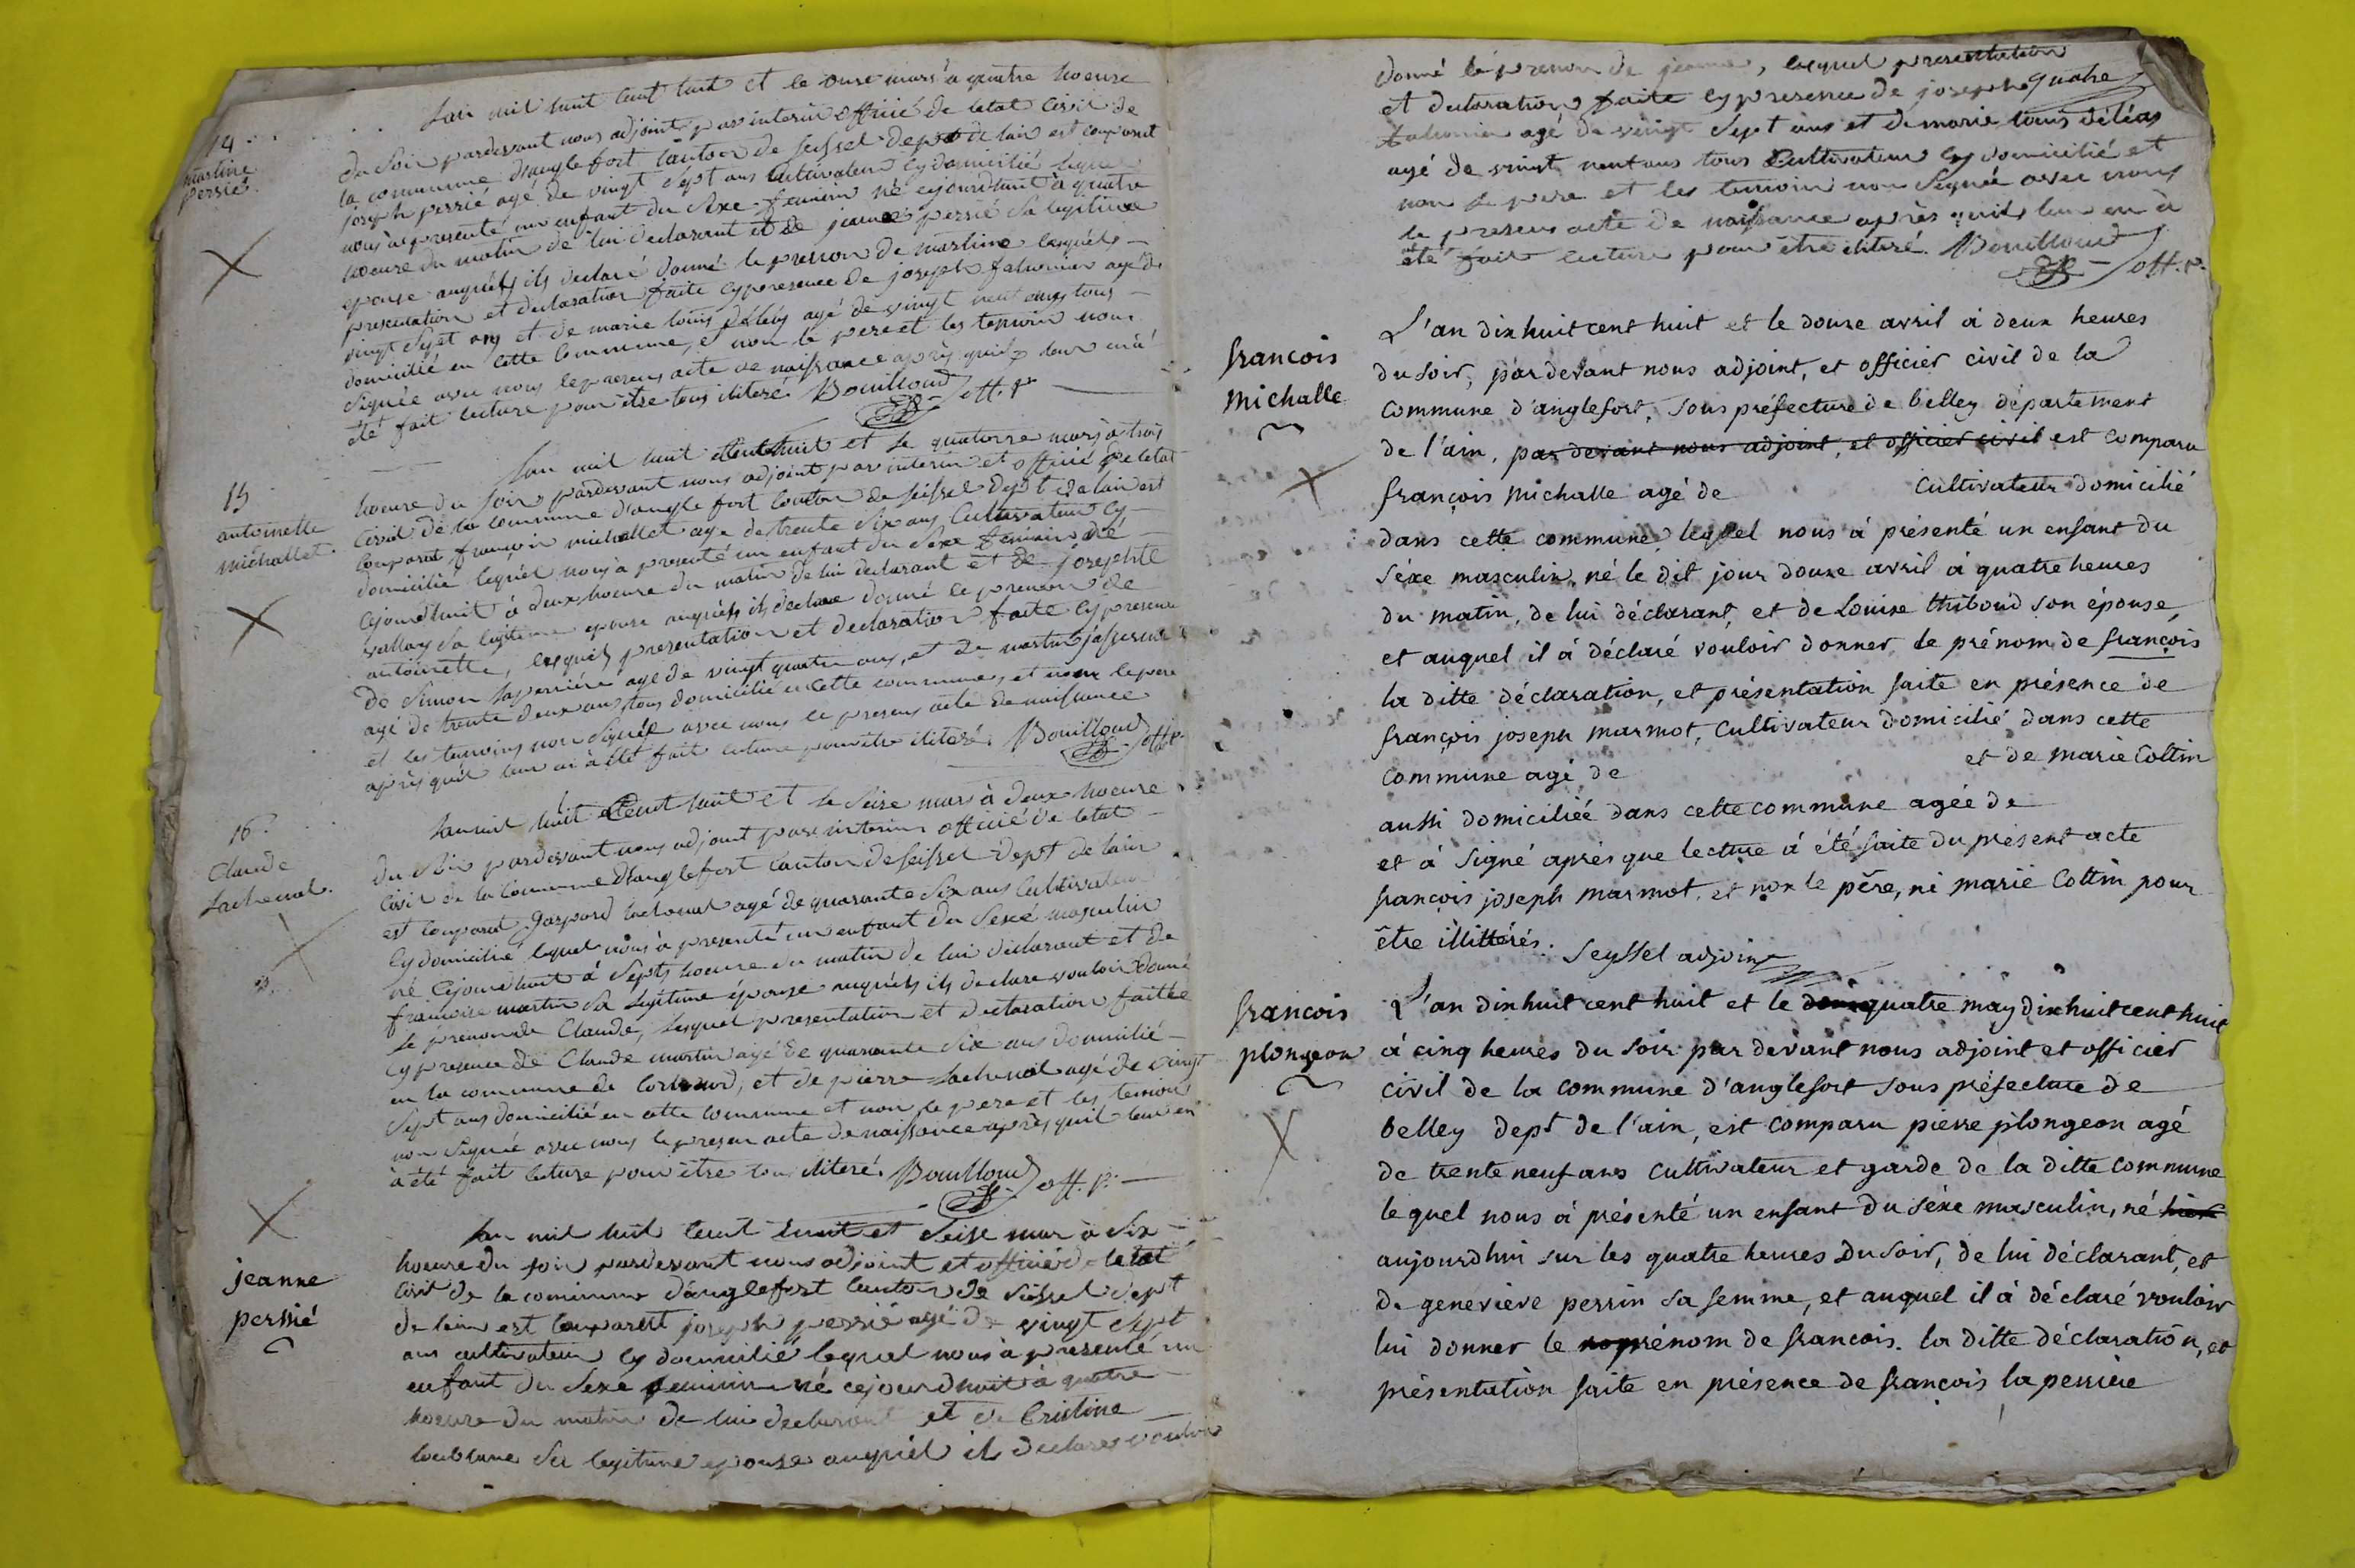 14
martine
persié
Lan mil huit cent huit et le onze mars à quatre hoeure
du soir pardevant nous adjoint par interin officié de letat civil de
la commune d'anglefort canton de seissel dept de lain est comparut
joseph persié agé de vingt sept ans cultivateur cy domicilié lequel
nous à presenté un enfant du sexe feminin né cejourdhuit à quatre
hoeure du matin de lui declarant et de jeanne persié sa legitime
epouse auquels ils declaré donné le prenon de martine lesquels
presentation et declaration faite cy presence de joseph falconier agé de
vingt sept ans et de marie louis déléas agé de vingt neuf ans tous
domicilié en cette commune, et non le pere et les temoin non
signée avec nous le presens acte de naissance après quil leur en à
été fait lecture pour être tous iliteré. Bouilloud off. p.
15
antoinette
michallet.
Lan mil huit cent huit et le quatorze mars à trois
hoeure du soir pardevant nous adjoint par interin et officié de letat
civil de la commune d'anglefort canton de seissel dept de lain est
comparut françois michallet age de trente six ans cultivateur cy
domicilié lequel nous à presenté un enfant du sexe feminin né
cejourdhuit à deux hoeure du matin de lui declarant et de josephte
vallay sa legitime epouse auquels ils declare donné le prenon de
antoinette, lesquels presentation et declaration faite cy presence
de Simon laperriére agé de vingt quatre ans, et de martin
agé de trente deux ans tous domicilié en cette commune, et non le pere
et les temoins non signée avec nous le presens acte de naissance
après quil leur en à été fait lecture pour être iliteré. Bouilloud off. p.
16
Claude
Lachenal.
Lan mil huit cent huit et le seize mars à deux hoeure
du soir pardevant nous adjoint par interin officié de letat
civil de la commune d'anglefort canton de seissel dept de lain
est comparut gaspard lachenal agé de quarante six ans cultivateur
cy domicilié lequel nous à presenté un enfant du sexe masculin
né cejourdhuit à septs hoeure du matin de lui declarant et de
françoise martin sa legitime épouse auquels ils declare vouloir donné
le prenon de Claude, lesquel presentation et declaration faitte
cy presence de Claude martin agé de quarante six ans domicilié
en la commune de , et de pierre lachenal agé de vingt
sept ans domicilié en cette commune et non le pere et les temoin
non signée avec nous le presen acte de naissance après quil leur en
à été fait lecture pour être tous iliteré. Bouilloud off. p.
jeanne
persié
Lan mil huit cent huit et seise mar à six
hoeure du soir pardevant nous adjoint et officié de letat
civil de la commune d'anglefort canton de seissel dept
de lain est comparut joseph persié agé de vingt sept
ans cultivateur cy domicilié lequel nous à presenté un
enfant du sexe feminin né cejourdhuit à quatre
hoeure du matin de lui declarant et de Cristine
sa legitime epouse auquel il declare vouloir
donné le prenon de jeanne, lequel presentation
et declaration faite cy presence de joseph
falconier agé de vingt sept ans et de marie louis déléas
agé de vingt neuf ans tous cultivateur cy domicilié et
non le pere et les temoin non signée avec nous
le presens acte de naissance après quils leur en à
été fait lecture pour être iliteré. Bouilloud off. p.
francois
michalle
L'an dixhuit cent huit et le douze avril à deux heures
du soir, par devant nous adjoint, et officier civil de la
commune d'anglefort, sous préfecture de belley département
de l'ain, par devant nous adjoint, et officier civil est comparu
françois michalle agé de cultivateur domicilié
dans cette commune, lequel nous à présenté un enfant du
séxe masculin, né le dit jour douze avril à quatre heures
du matin, de lui déclarant, et de Louise thiboud son épouse,
et auquel il à déclaré vouloir donner le prénom de françois
la ditte déclaration, et présentation faite en présence de
françois joseph marmot, cultivateur domicilié dans cette
commune agé de et de marie Cottin
aussi domiciliée dans cette commune agée de
et à signé après que lecture à été faite du présent acte
françois joseph marmot, et non le père, ni marie Cottin pour
être illittérés. Seyssel adjoint
francois
plongeon
L'an dixhuit cent huit et le quatre may dixhuit cent huit
à cinq heures du soir par devant nous adjoint et officier
civil de la commune d'anglefort sous préfecture de
belley dept de l'ain, est comparu pierre plongeon agé
de trente neuf ans cultivateur et garde de la ditte commune
le quel nous à présenté un enfant du séxe masculin, né hier
aujourdhui sur les quatre heures du soir, de lui déclarant, et
de genevieve perrin sa femme, et auquel il à déclaré vouloir
lui donner le prénom de francois. la ditte déclaration, et
présentation faite en présence de françois la perriere